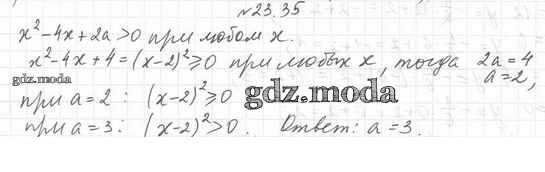 №23.35
x²-4x+2a>0 при любом x.
x²-4x+4=(x-2)²⩾0 при любых x, тогда 2a=4
gdz.moda a=2,
при a=2: (x-2)²⩾0 gdz.moda
при a=3: (x-2)²>0. Ответ: a=3.